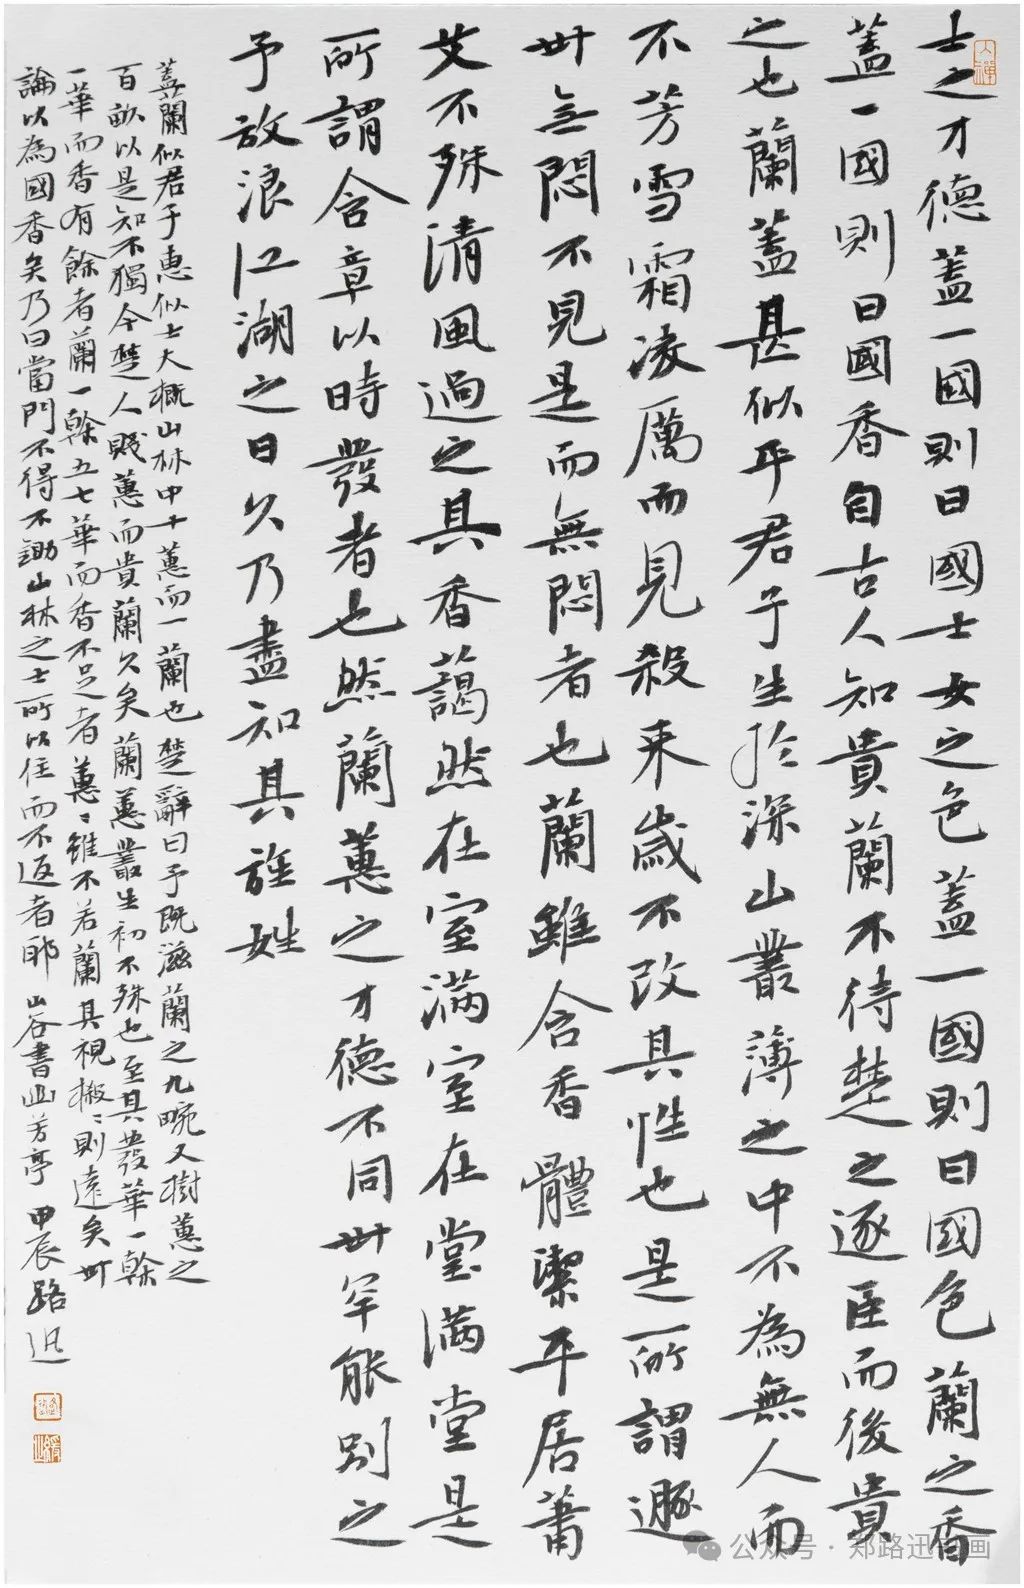 士之才德蓋一國則曰國士女之色蓋一國則曰國色蘭之香
蓋一國則曰國香自古人知貴蘭不待楚之逐臣而後貴
之也蘭蓋甚似乎君子生於深山叢薄之中不為無人而
不芳雪霜凌厲而見殺来歲不改其性也是所謂遯
世無悶不見是而無悶者也蘭雖含香體潔平居蕭
艾不殊清風過之其香藹然在室滿室在堂滿堂是
所謂含章以時發者也然蘭蕙之才德不同世罕能別之
予放浪江湖之日久乃盡知其族姓
蓋蘭似君子蕙似士大概山林中十蕙而一蘭也楚辭曰予既滋蘭之九畹又樹蕙之
百畝以是知不獨今楚人賤蕙而貴蘭久矣蘭蕙叢生初不殊也至其發華一榦
一華而香有餘者蘭一榦五七華而香不足者蕙蕙雖不若蘭其視椒榝則遠矣世
論以為國香矣乃曰當門不得不鋤山林之士所以往而不返者耶 山谷書幽芳亭 甲辰路迅
大禪
公众号·郑路迅书画